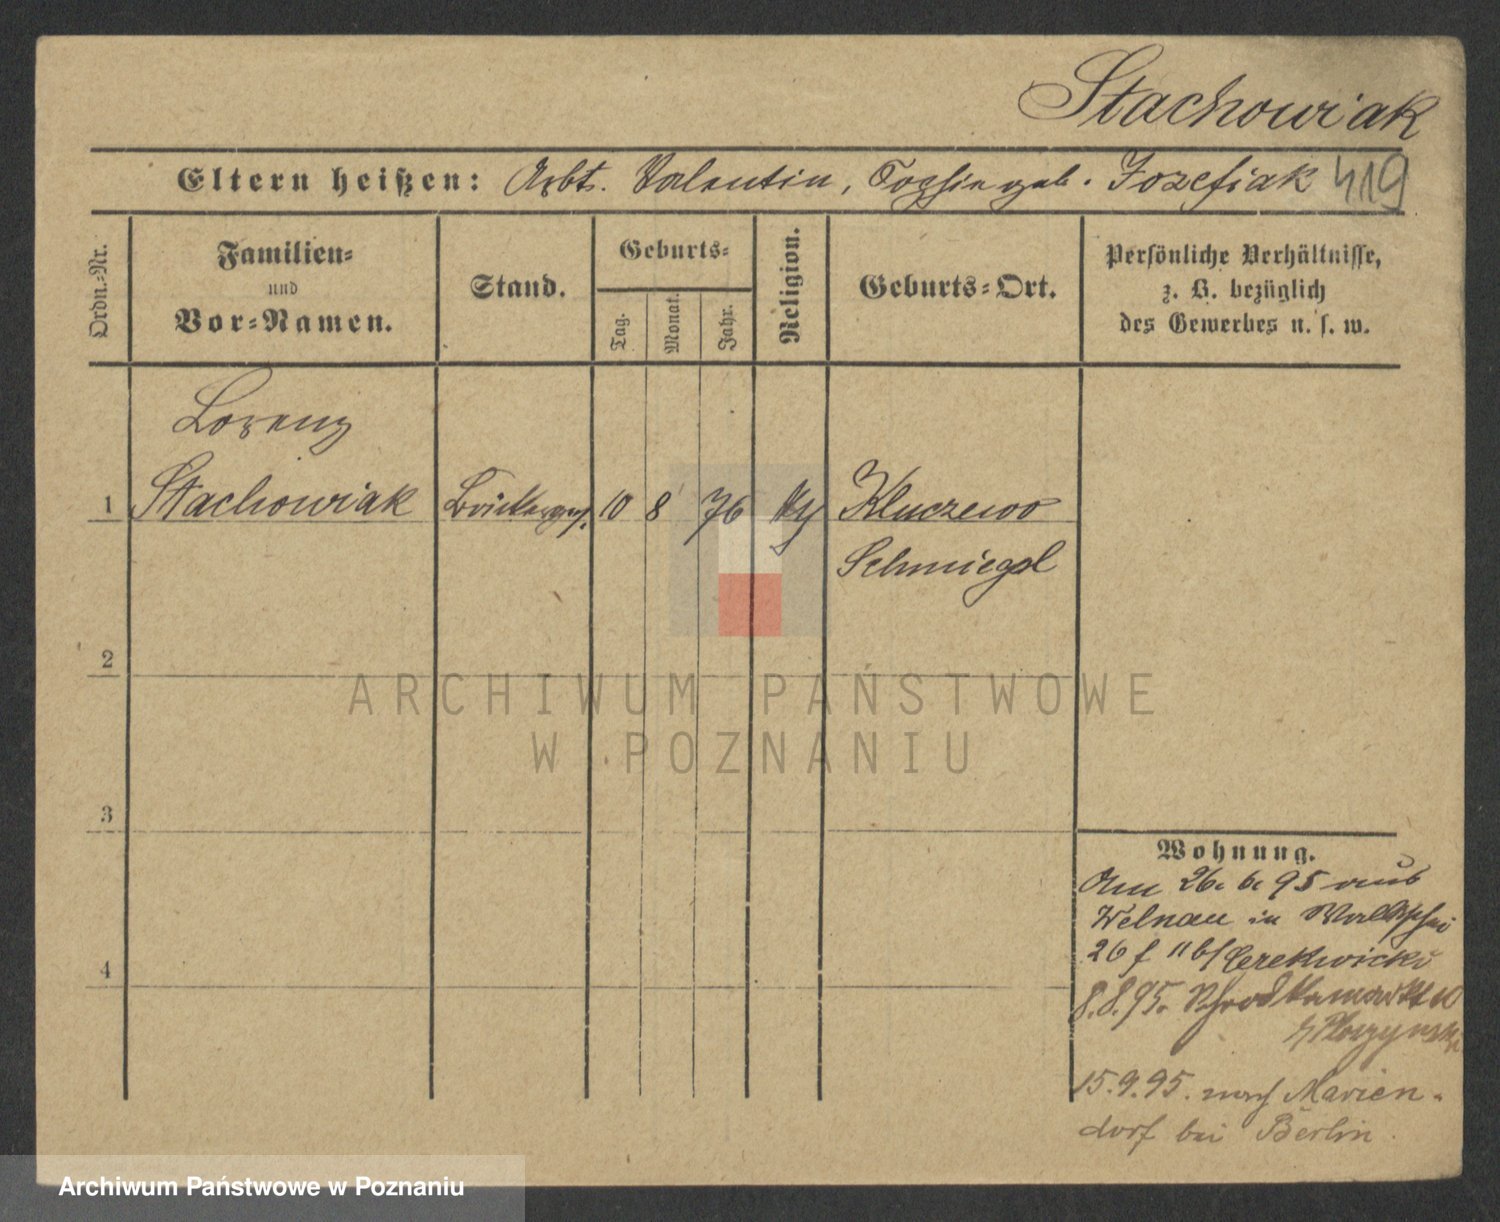 Stachowiak
Eltern heißen: Arbt. Valentin, Sophie geb. Jozefiak 419
Ordn.-Nr.
Familien-
und
Vor-Namen.
Stand.
Geburts-
Tag.
Monat.
Jahr.
Religion.
Geburts-Ort.
Persönliche Verhältnisse,
z. B. bezüglich
des Gewerbes u. s. w.
Lorenz
1 Stachowiak 10 8 76 Kluczewo
Schmiegel
2
ARCHIWUM PAŃSTWOWE
W POZNANIU
3
4
Wohnung.
Am 26. 6. 95 aus
Welnau in Wallischei
26 f Cerekwicki
8.8.95.
15.9.95. nach Marien-
dorf bei Berlin.
Archiwum Państwowe w Poznaniu